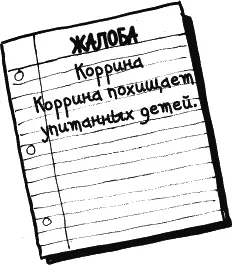 ЖАЛОБА
Коррина
Коррина похищает
упитанных детей.